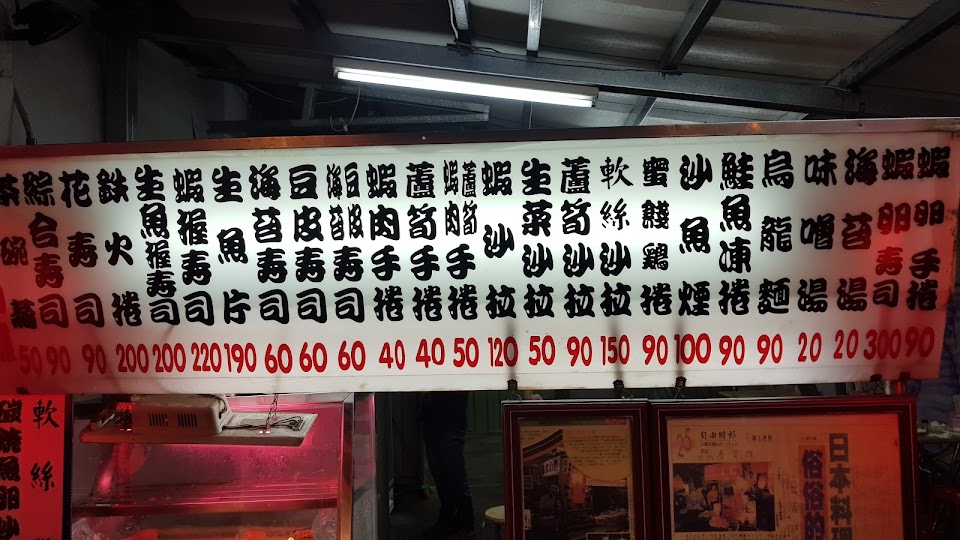 茶碗蒸 50
綜合寿司 90
花寿司 90
鉄火捲 200
生魚握寿司 200
蝦握寿司 220
生魚片 190
海苔寿司 60
豆皮寿司 60
海苔豆皮寿司 60
蝦肉手捲 40
蘆筍手捲 40
蝦肉蘆筍手捲 50
蝦沙拉 120
生菜沙拉 50
蘆筍沙拉 90
軟絲沙拉 150
蜜餞鶏捲 90
沙魚煙 100
鮭魚凍捲 90
烏龍麵 90
味噌湯 20
海苔湯 20
蝦卵寿司 300
蝦卵手捲 90
軟絲
燒魚卵沙
25
日本料理
俗俗的